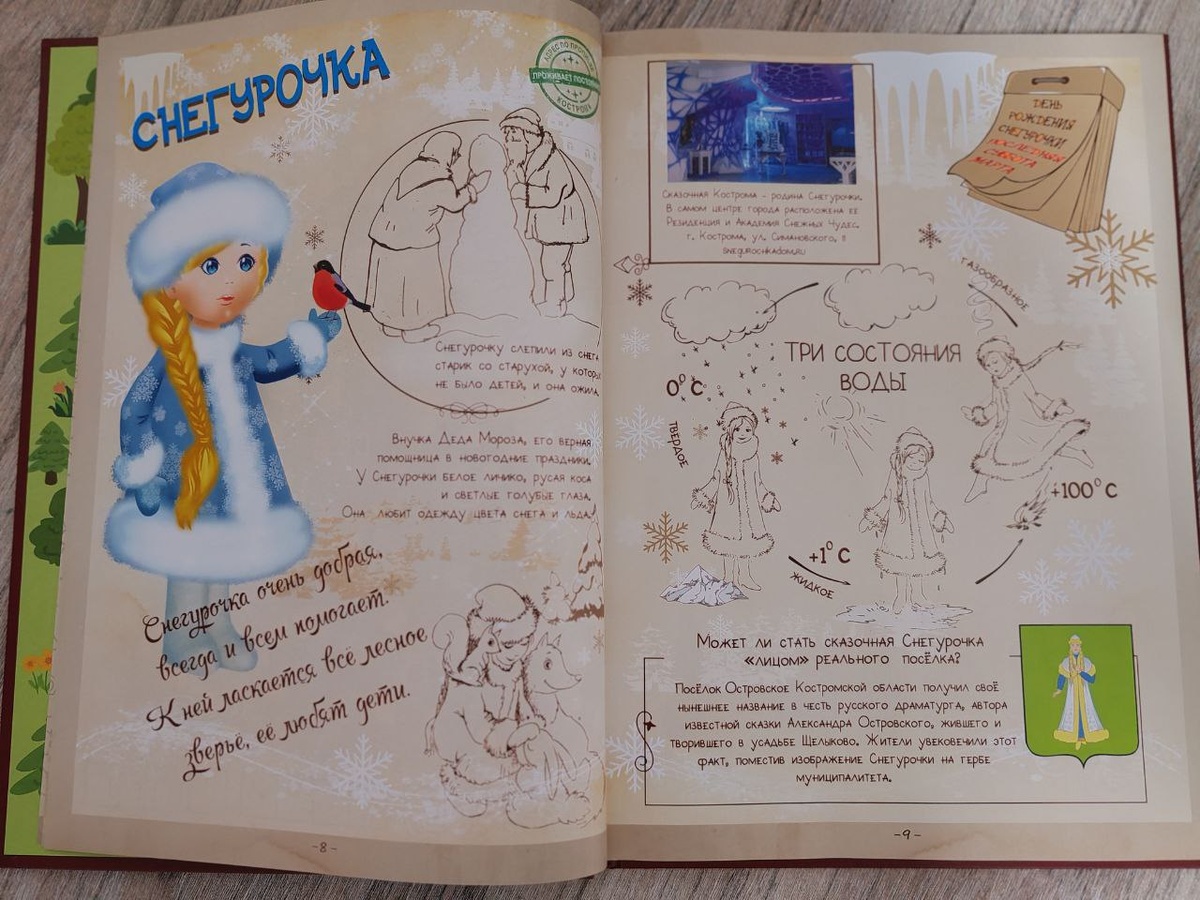 СНЕГУРОЧКА
ПРОЖИВАЕТ
КОСТРОМА
Снегурочку слепили из снега
старик со старухой, у которых
не было детей, и она ожила.
Внучка Деда Мороза, его верная
помощница в новогодние праздники.
У Снегурочки белое личико, русая коса
и светлые голубые глаза.
Она любит одежду цвета снега и льда!
Снегурочка очень добрая,
всегда и всем помогает.
К ней ласкается всё лесное
зверьё, её любят дети.
-8-
Сказочная Кострома - родина Снегурочки.
В самом центре города расположена её
Резиденция и Академия Снежных Чудес.
г. Кострома, ул. Симановского, 11
snegurochkadom.ru
ДЕНЬ
РОЖДЕНИЯ
СНЕГУРОЧКИ
ПОСЛЕДНЯЯ
СУББОТА
МАРТА
газообразное
ТРИ СОСТОЯНИЯ
ВОДЫ
0⁰ С
твердое
+100⁰ С
+1⁰ С
жидкое
Может ли стать сказочная Снегурочка
«лицом» реального посёлка?
Посёлок Островское Костромской области получил своё
нынешнее название в честь русского драматурга, автора
известной сказки Александра Островского, жившего и
творившего в усадьбе Щелыково. Жители увековечили этот
факт, поместив изображение Снегурочки на гербе
муниципалитета.
-9-